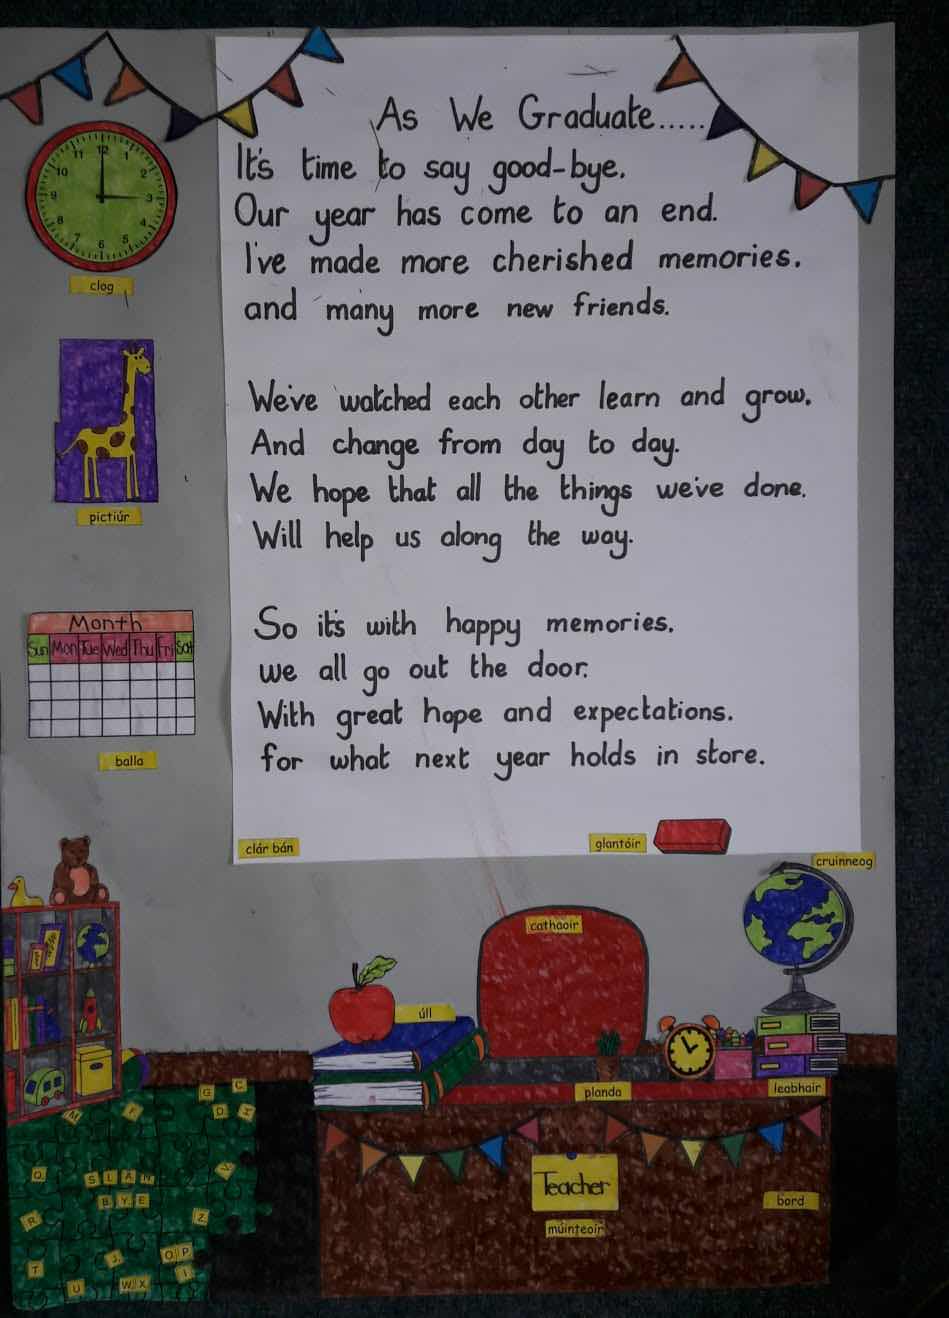 As We Graduate.....
It's time to say good-bye.
Our year has come to an end.
I've made more cherished memories.
and many more new friends.
We've watched each other learn and grow.
And change from day to day.
We hope that all the things we've done.
Will help us along the way.
So it's with happy memories.
we all go out the door.
With great hope and expectations.
for what next year holds in store.
12
1
2
3
4
5
6
7
8
9
10
11
clog
pictiúr
Month
Sun Mon Tue Wed Thu Fri Sat
balla
clár bán
glantóir
cruinneog
cathaoir
úll
planda
leabhair
Teacher
múinteoir
bord
G C
M F D H
Q V
SLAN
BYE
R Z
T J OP
U WX I